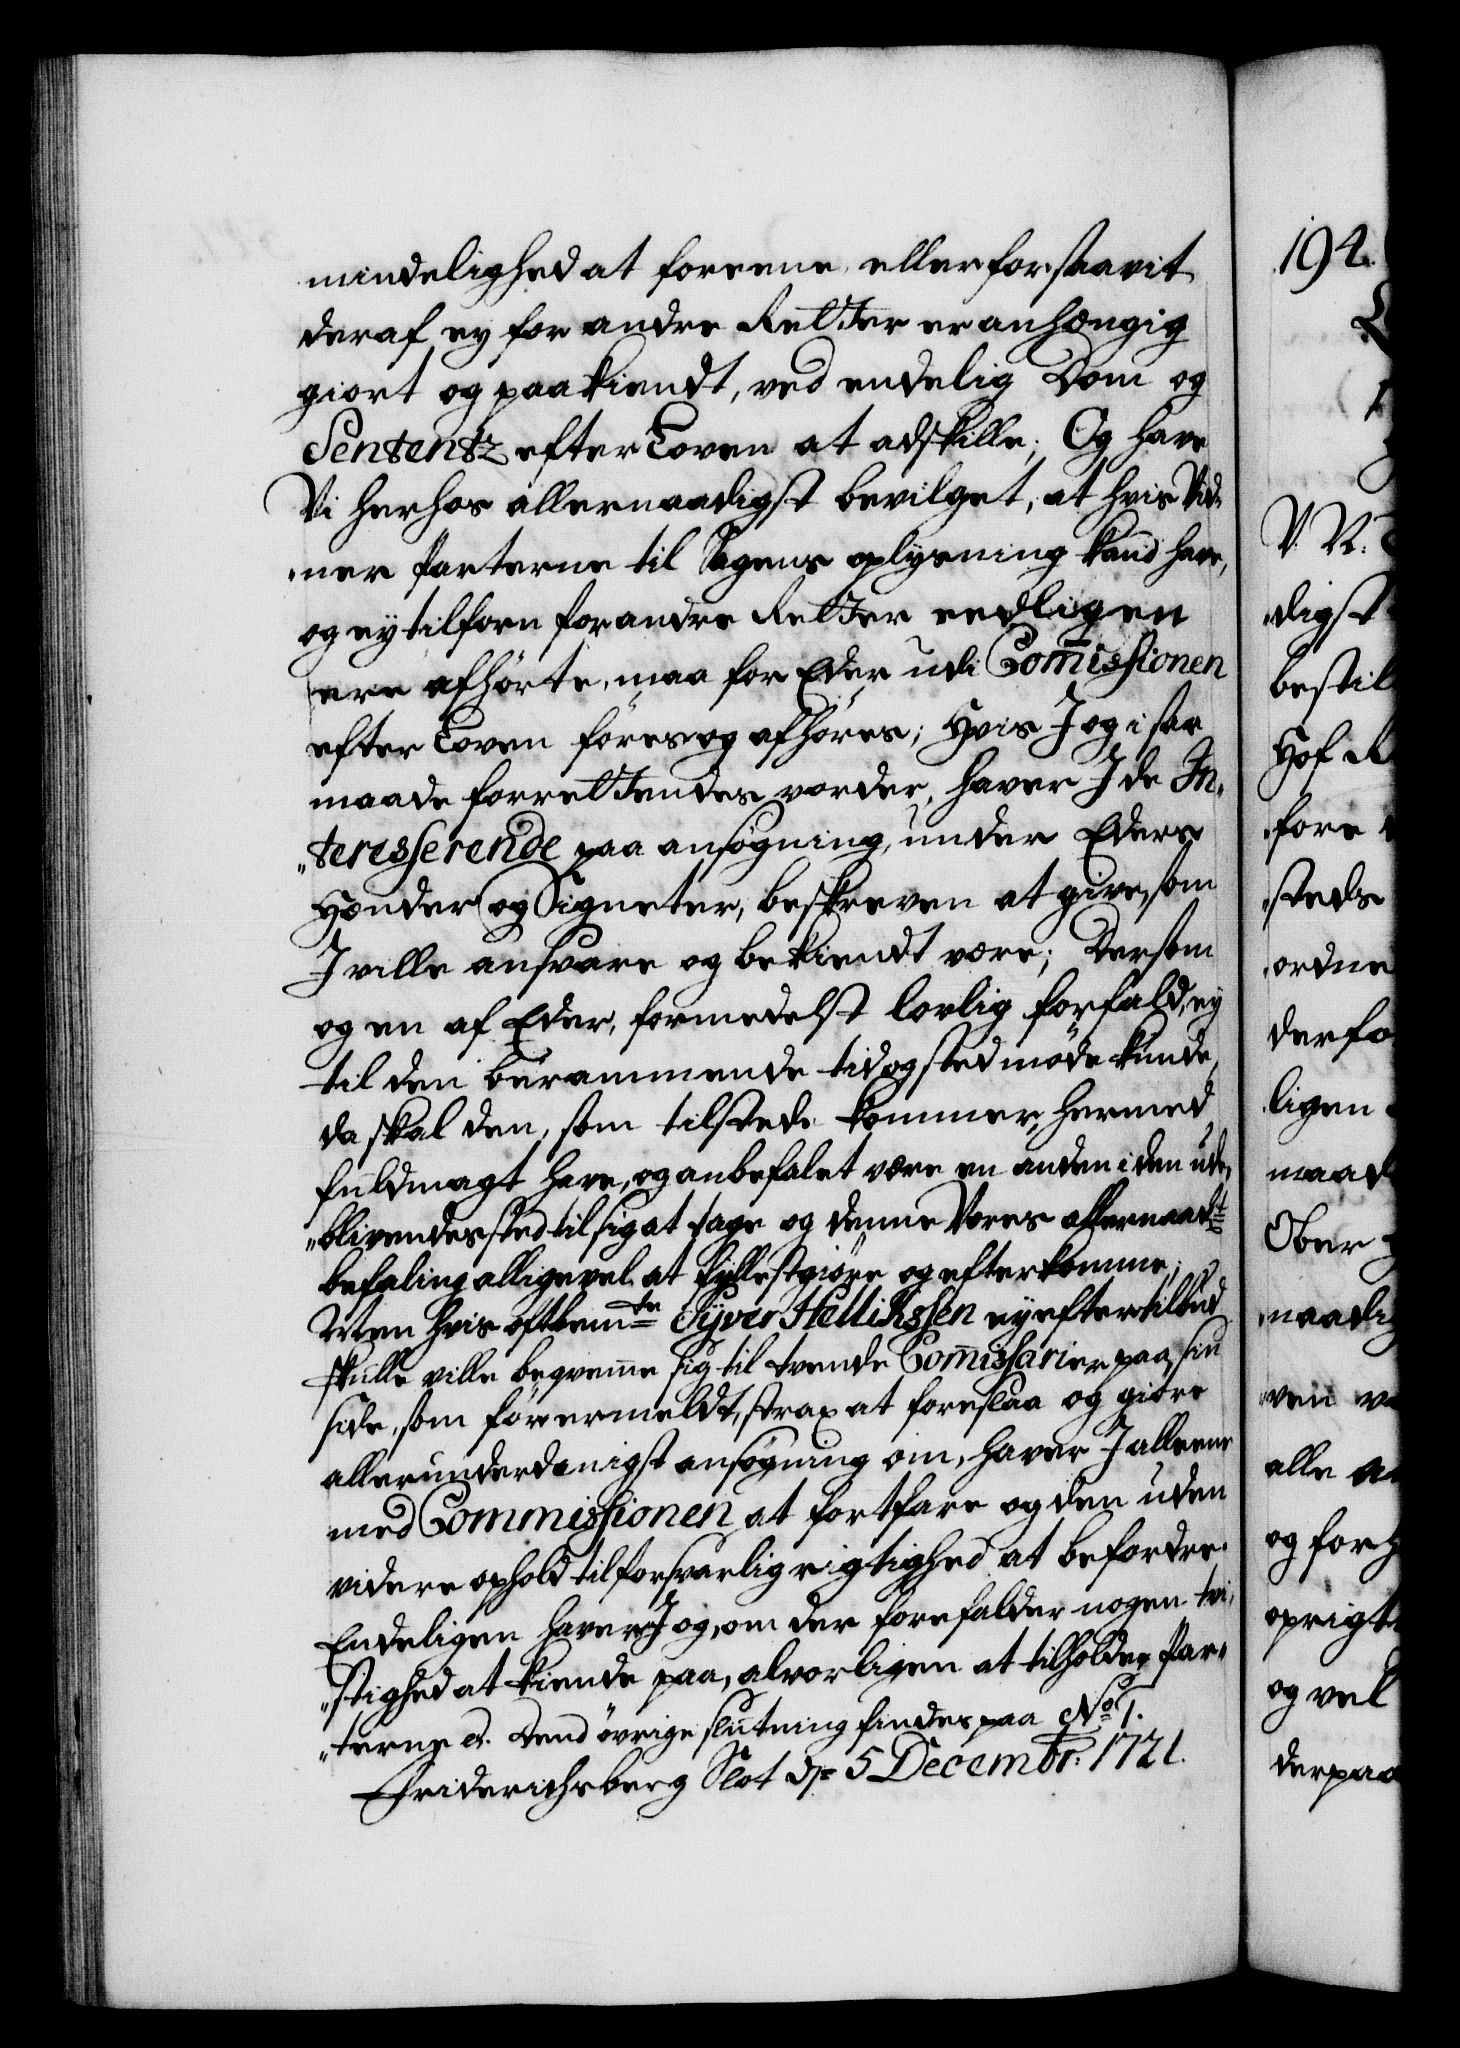 mindelighed at foreene, eller forsaavit
deraf ey for andre Retter er anhængig
giort og paakiendt, ved endelig Dom og
Sententz efter Loven at adskille; Og have
Vi herhos allernaadigst bevilget, at hvis Vid-
„ner Parterne til Sagens oplysning kand have,
og ey tilforn for andre Retter eedligen
ere afhørte, maa for Eder udi Com̄issionen
efter Loven föres og afhöres; Hvis I og i saa
maade forrettendes vorder, haver I de In-
„teresserende paa ansögning, under Eders
Hænder og Signeter, beskreven at give, som
I ville ansvare og bekiendt være; Dersom
og en af Eder, formedelst lovlig forfald, ey
til den berammende tid og sted möde kunde,
da skal den, som tilstede kommer, hermed
fuldmagt have, og anbefalet være en anden i den ude-
„blivendes sted til sig at tage og denne Vores allernaadste
befaling alligevel at fyllestgiöre og efterkomme;
Men hvis oftbemte Syver Hellikssen ey efter tilbud
skulle ville beqvem̄e sig til tvende Com̄issarier paa sin
side, som för ermeldt, strax at foreslaa og giöre
allerunderdanigst ansögning om, haver I alleene
med Commissionen at fortfare og den uden
videre ophold til forsvarlig rigtighed at befordre.
Endeligen haver I og, om der forefalder nogen tvi-
„stighed at kiende paa, alvorligen at tilholde Par-
„terne etc. Dend övrige slutning findes paa No 1.
Friderichsberg Slot d. 5 Decembr: 1721.
194.
V. N:
„digst
bestil
Hof R
„fore
„steds
„ordne
derfo
ligen
maad
Ober
„naadig
„ven
alle
og for
oprigt
og vel
derpaa